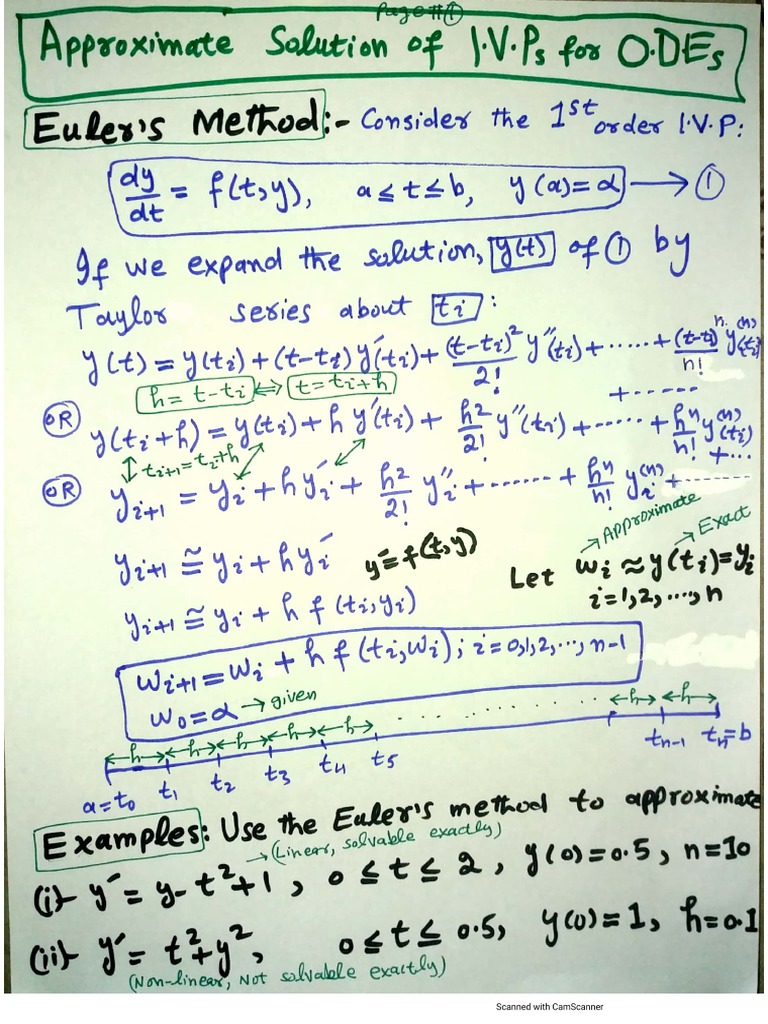 Page#①
Approximate Solution of I.V.Ps for O.D.Es
Euler's Method:- Consider the 1st order I.V.P:
dy/dt = f(t,y), a≤t≤b, y(a)=α → ①
If we expand the solution, y(t) of ① by
Taylor series about ti:
y(t) = y(ti) + (t-ti) y′(ti) + (t-ti)²/2! y″(ti) + ...... + (t-ti)ⁿ/n! y⁽ⁿ⁾(ti)
+ ......
h = t-ti ⟺ t = ti+h
OR y(ti+h) = y(ti) + h y′(ti) + h²/2! y″(ti) + ...... + hⁿ/n! y⁽ⁿ⁾(ti)
+ ...
ti+1 = ti+h
OR yi+1 = yi + h yi′ + h²/2! yi″ + ...... + hⁿ/n! yi⁽ⁿ⁾ + ......
yi+1 ≅ yi + h yi′ y′=f(t,y)
→Approximate →Exact
Let wi ≈ y(ti) = yi
i=1,2,...,n
yi+1 ≅ yi + h f(ti,yi)
wi+1 = wi + h f(ti,wi); i=0,1,2,...,n-1
w0 = α → given
h h h h h ............ h h
a=t0 t1 t2 t3 t4 t5 tn-1 tn=b
Examples: Use the Euler's method to approximate
→(Linear, solvable exactly)
(i)- y′ = y-t²+1, 0≤t≤2, y(0)=0.5, n=10
(ii)- y′ = t²+y², 0≤t≤0.5, y(0)=1, h=0.1
(Non-linear, Not solvable exactly)
Scanned with CamScanner